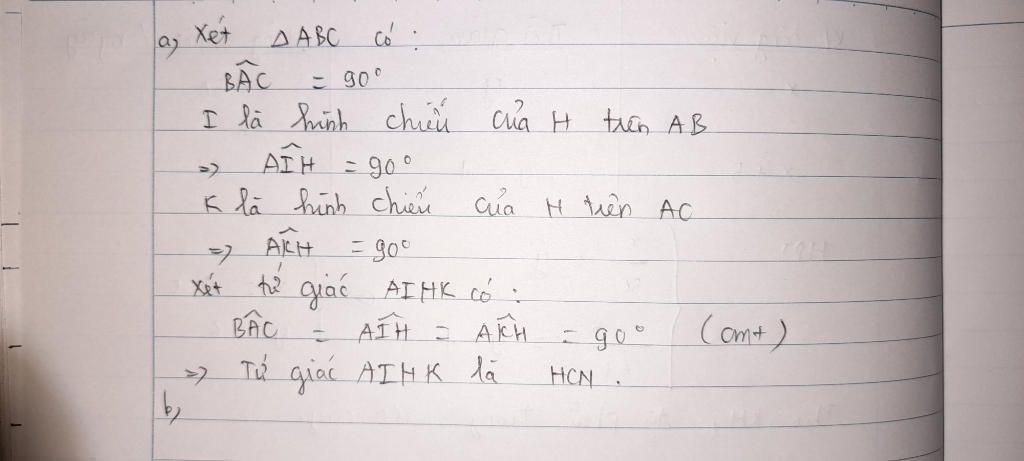 a, Xét △ABC có :
BÂC = 90°
I là hình chiếu của H trên AB
=> AÎH = 90°
K là hình chiếu của H trên AC
=> AK̂H = 90°
Xét tứ giác AIHK có :
BÂC = AÎH = AK̂H = 90° (cmt)
=> Tứ giác AIHK là HCN.
b,